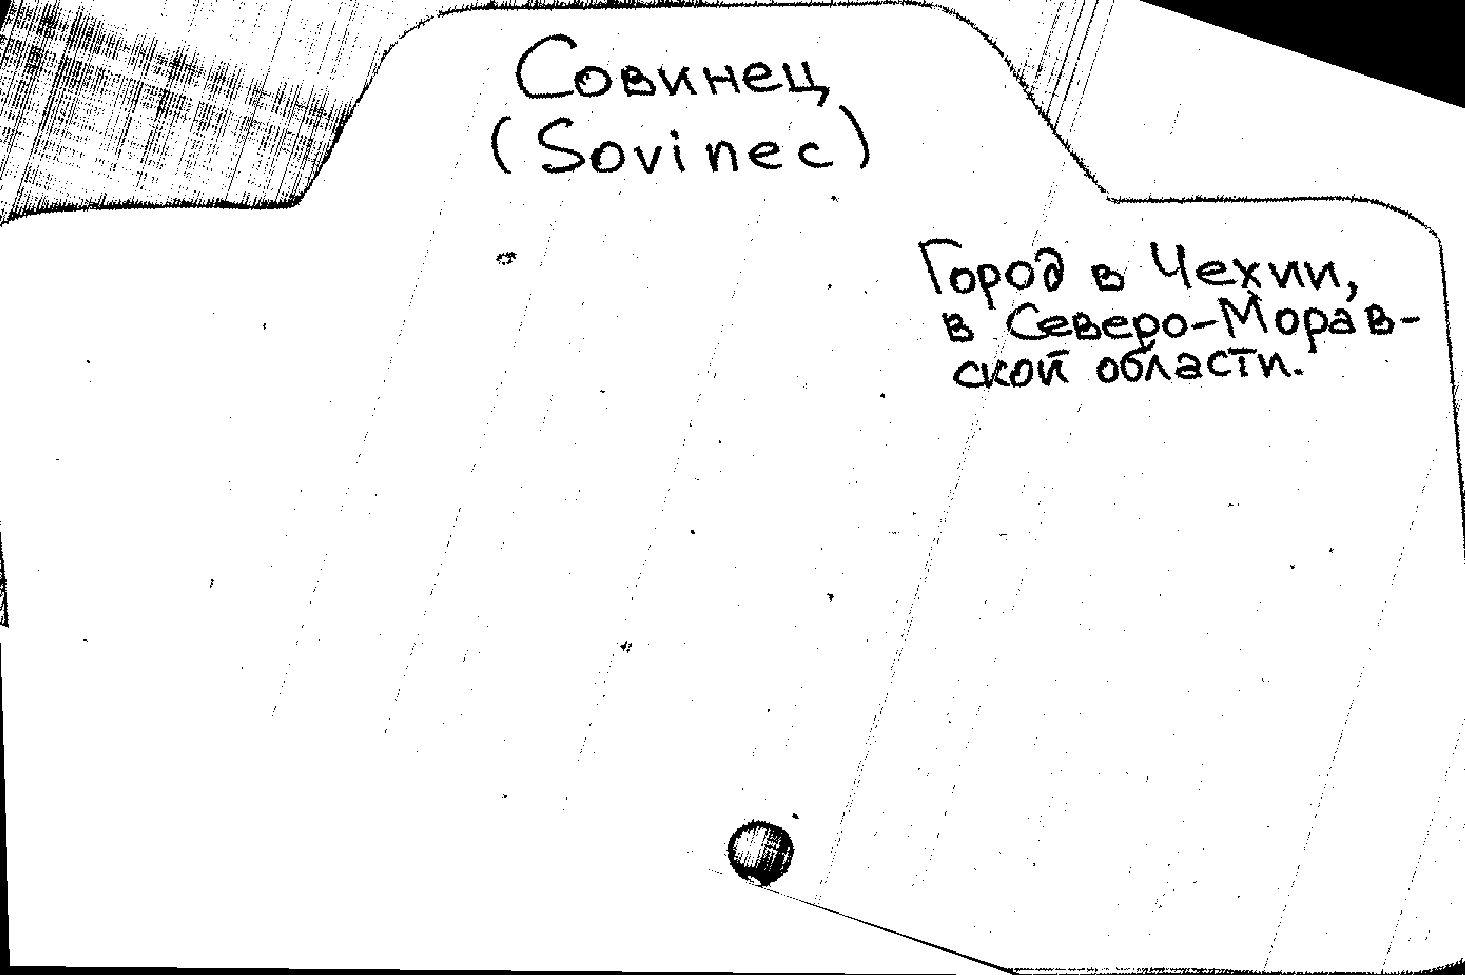 Совинец
(Sovinec)
Город в Чехии,
в Северо-Морав-
ской области.